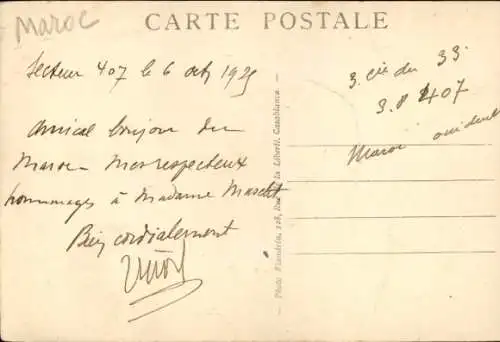 Maroc
CARTE POSTALE
Secteur 407 le 6 oct 1925
Amical bonjour du
Maroc - Mes respecteux
hommages à Madame
Bien cordialement
3. Cie du 33.
407
Maroc occident
Photo Flandrin, 128, Rue de la Liberté. Casablanca.